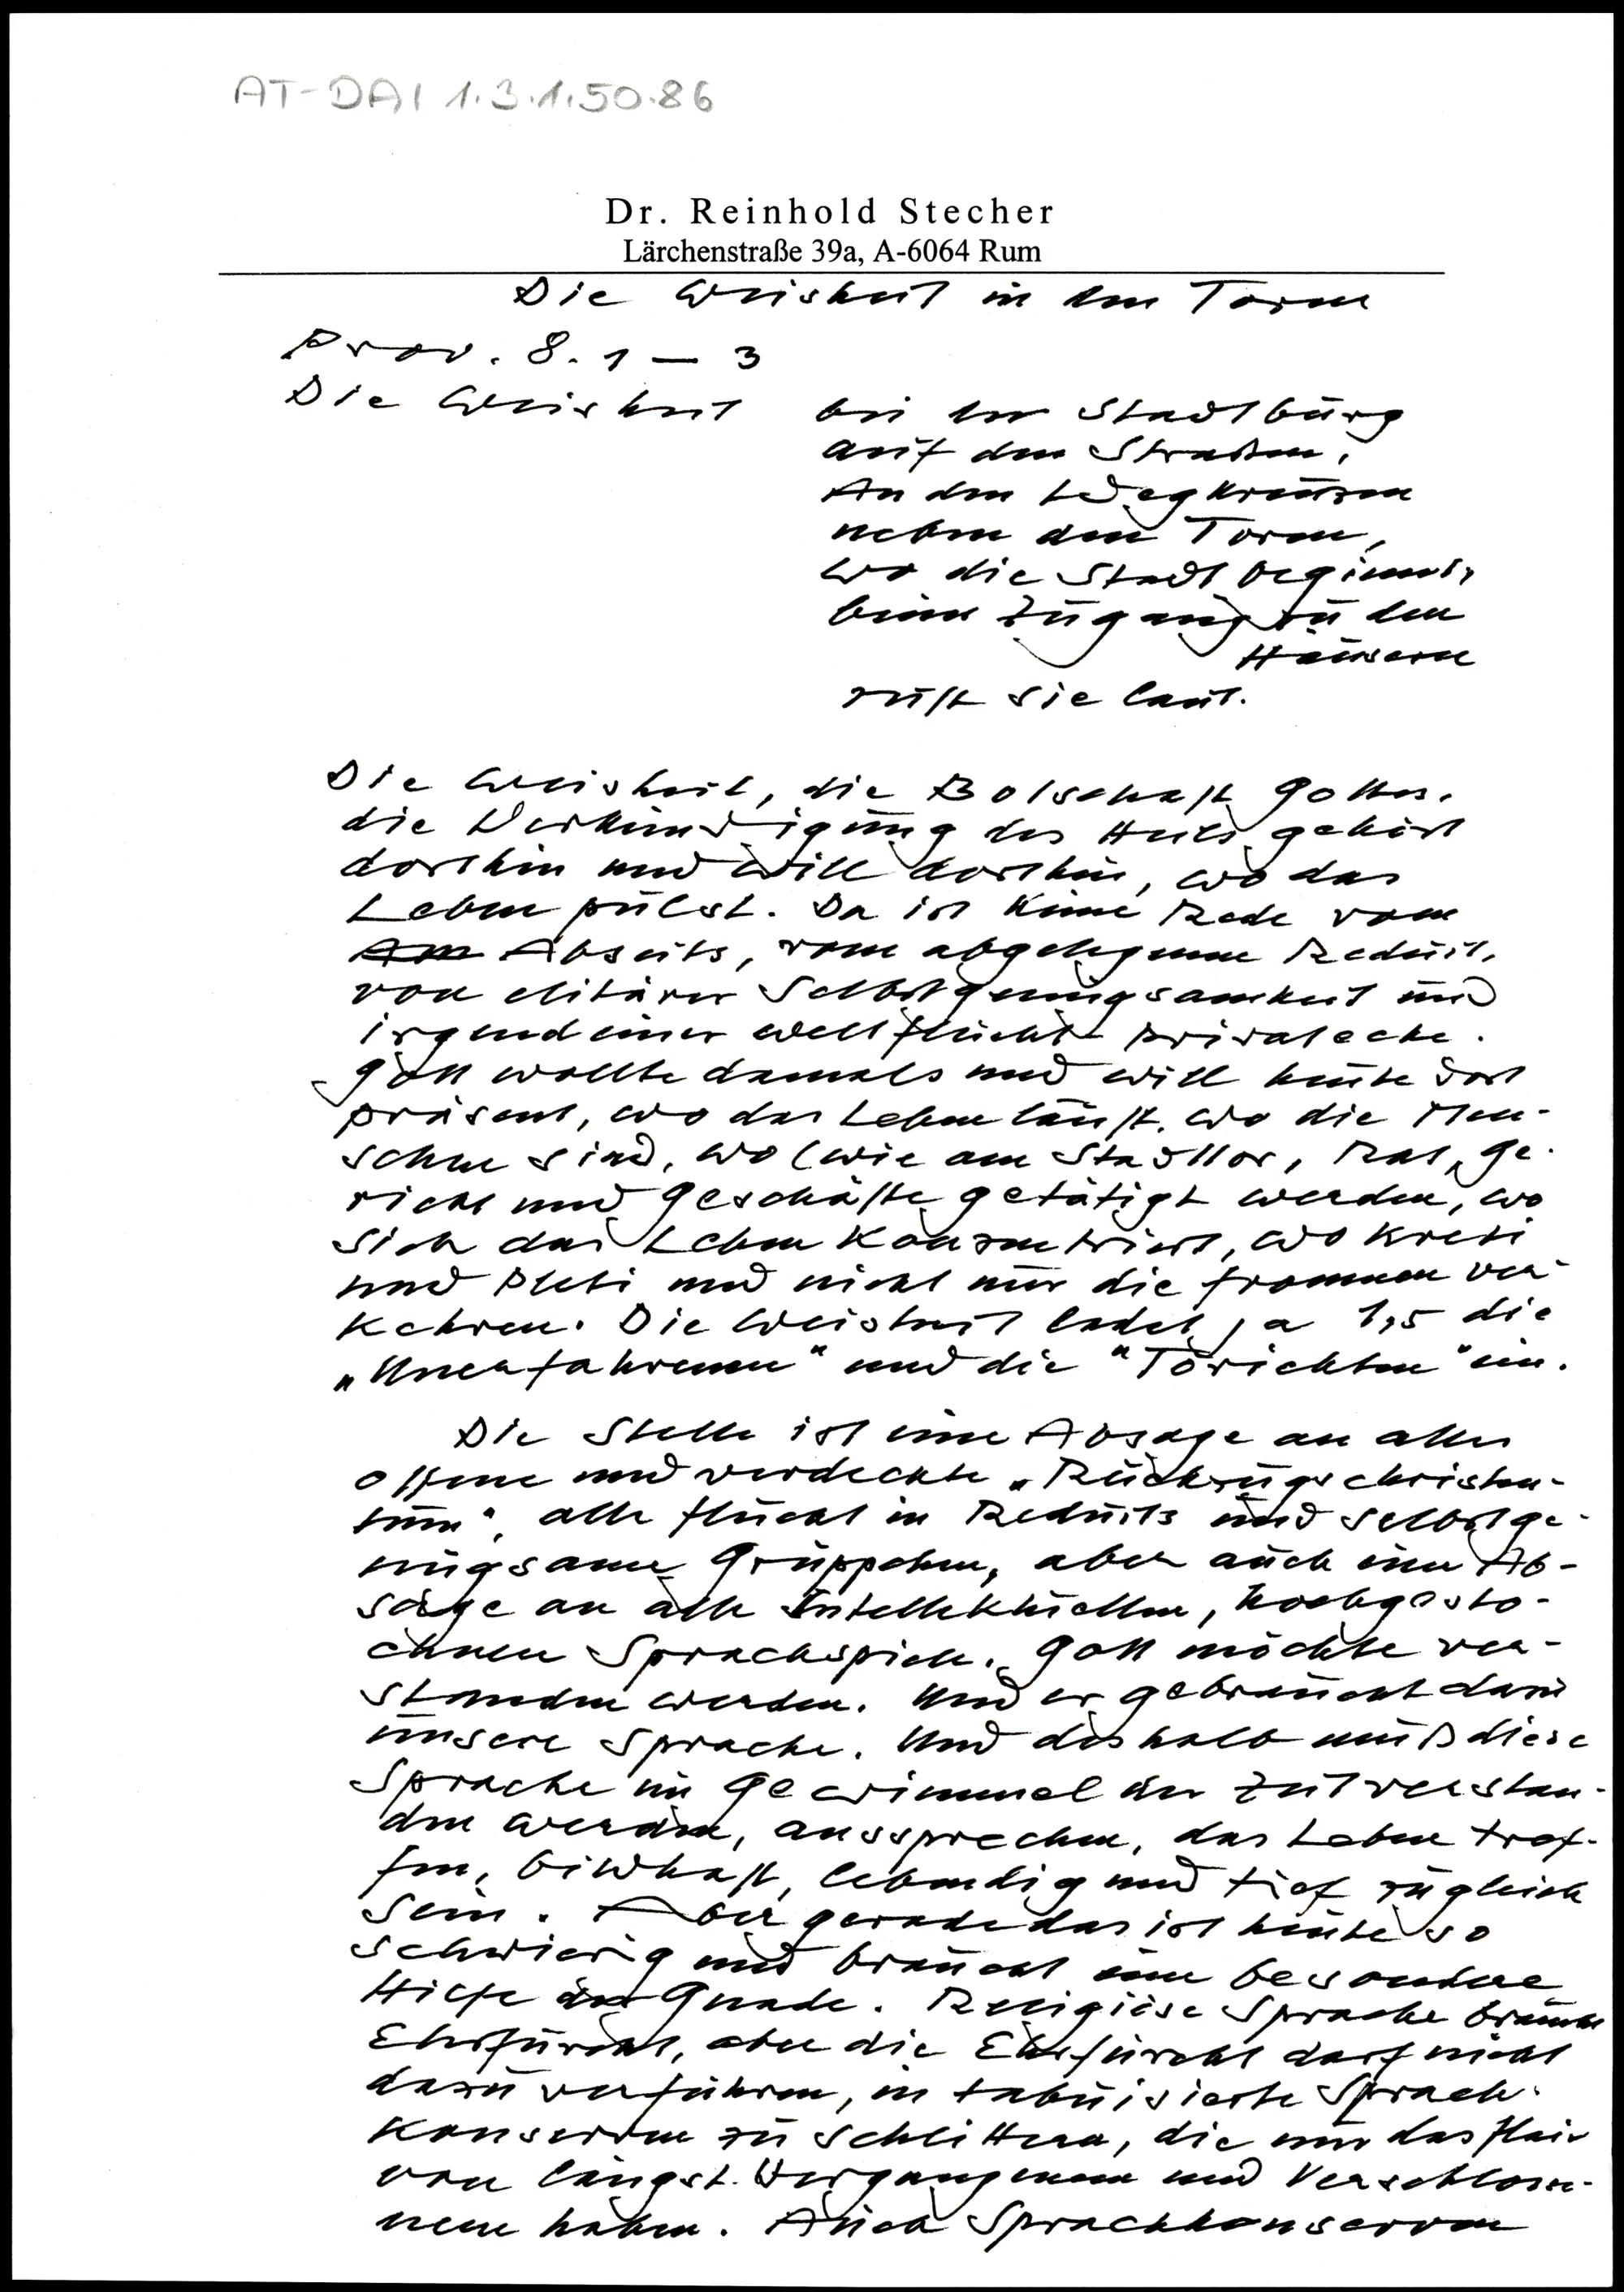 AT-DAI 1.3.1.50.86
Dr. Reinhold Stecher
Lärchenstraße 39a, A-6064 Rum
Die Weisheit in den Toren
Prov. 8. 1 – 3
Die Weisheit bei der Stadtburg
auf den Straßen,
An den Wegkreuzen
neben den Toren,
wo die Stadt beginnt,
beim Zugang zu den
Häusern
ruft sie laut.
Die Weisheit, die Botschaft Gottes,
die Verkündigung des Heils gehört
dorthin und will dorthin, wo das
Leben pulst. Da ist keine Rede vom
Am Abseits, vom abgelegenen Reduit,
von elitärer Selbstgenügsamkeit und
irgendeiner weltflucht Privatecke.
Gott wollte damals und will heute dort
präsent, wo das Leben läuft, wo die Men-
schen sind, wo (wie am Stadttor, Rat, Ge-
richt und Geschäfte getätigt werden, wo
sich das Leben konzentriert, wo Kreti
und Pleti und nicht nur die frommen ver-
kehren. Die Weisheit ladet ja 1,5 die
„Unerfahrenen" und die "Törichten" ein.
Die Stelle ist eine Absage an alles
offene und verdeckte „Rückzugschristen-
tum", alle Flucht in Reduits und selbstge-
nügsame Grüppchen, aber auch eine Ab-
sage an alle Intellektuellen, hochgesto-
chnen Sprachspiele. Gott möchte ver-
standen werden. Und er gebraucht dazu
unsere Sprache. Und deshalb muß diese
Sprache im Gewimmel der Zeit verstan-
den werden, ansprechen, das Leben tref-
fen, bildhaft, lebendig und tief zugleich
sein. Aber gerade das ist heute so
schwierig und braucht eine besondere
Hilfe der Gnade. Religiöse Sprache braucht
Ehrfurcht, aber die Ehrfurcht darf nicht
dazu verführen, in tabuisierte Sprach-
konserven zu schlittern, die nur das Flair
von längst Vergangenem und
haben. Auch Sprachkonserven